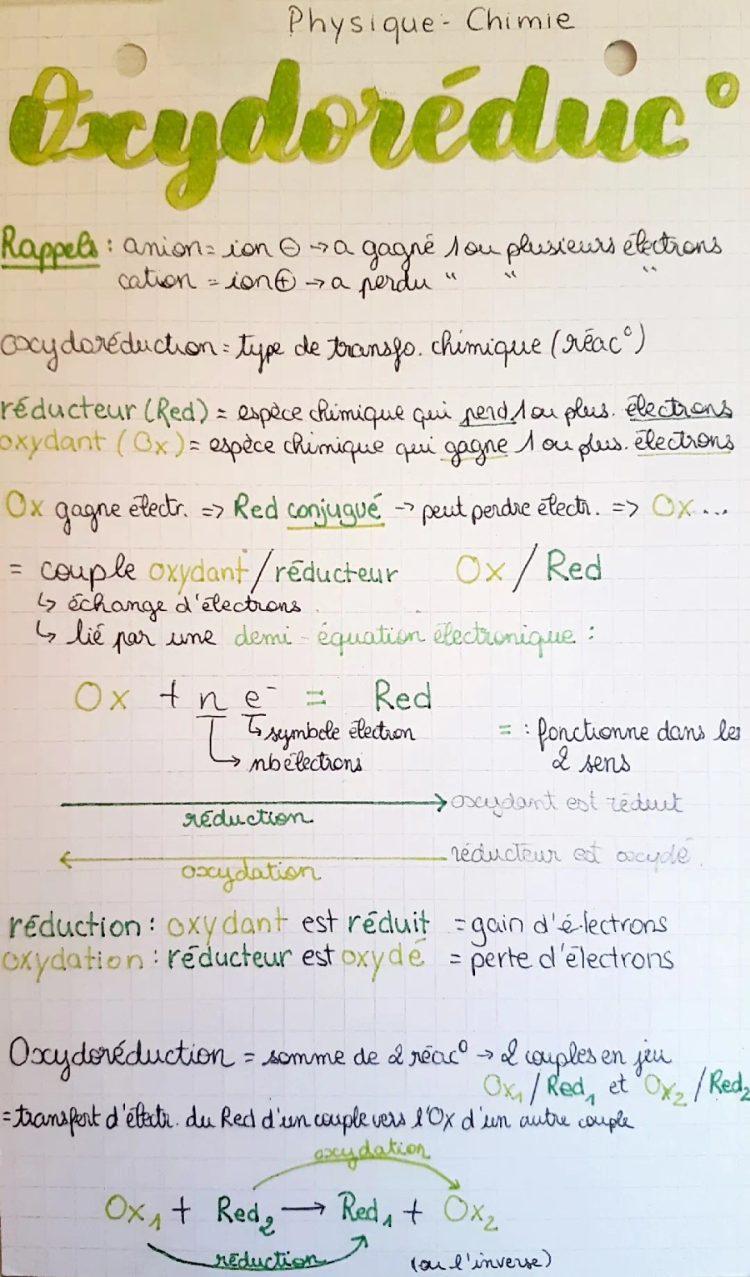 Physique - Chimie
Oxydoréduc°
Rappels : anion = ion ⊖ → a gagné 1 ou plusieurs électrons
cation = ion ⊕ → a perdu " " "
oxydoréduction = type de transfo. chimique (réac°)
réducteur (Red) = espèce chimique qui perd 1 ou plus. électrons
oxydant (Ox) = espèce chimique qui gagne 1 ou plus. électrons
Ox gagne électr. => Red conjugué → peut perdre électr. => Ox...
= couple oxydant/réducteur Ox/Red
↳ échange d'électrons
↳ lié par une demi-équation électronique :
Ox + n e⁻ = Red
↳ symbole électron = : fonctionne dans les
↳ nb électrons 2 sens
réduction → oxydant est réduit
oxydation ← réducteur est oxydé.
réduction : oxydant est réduit = gain d'électrons
oxydation : réducteur est oxydé = perte d'électrons
Oxydoréduction = somme de 2 réac° → 2 couples en jeu
Ox₁/Red₁ et Ox₂/Red₂
= transfert d'électr. du Red d'un couple vers l'Ox d'un autre couple
oxydation
Ox₁ + Red₂ → Red₁ + Ox₂
réduction (ou l'inverse)